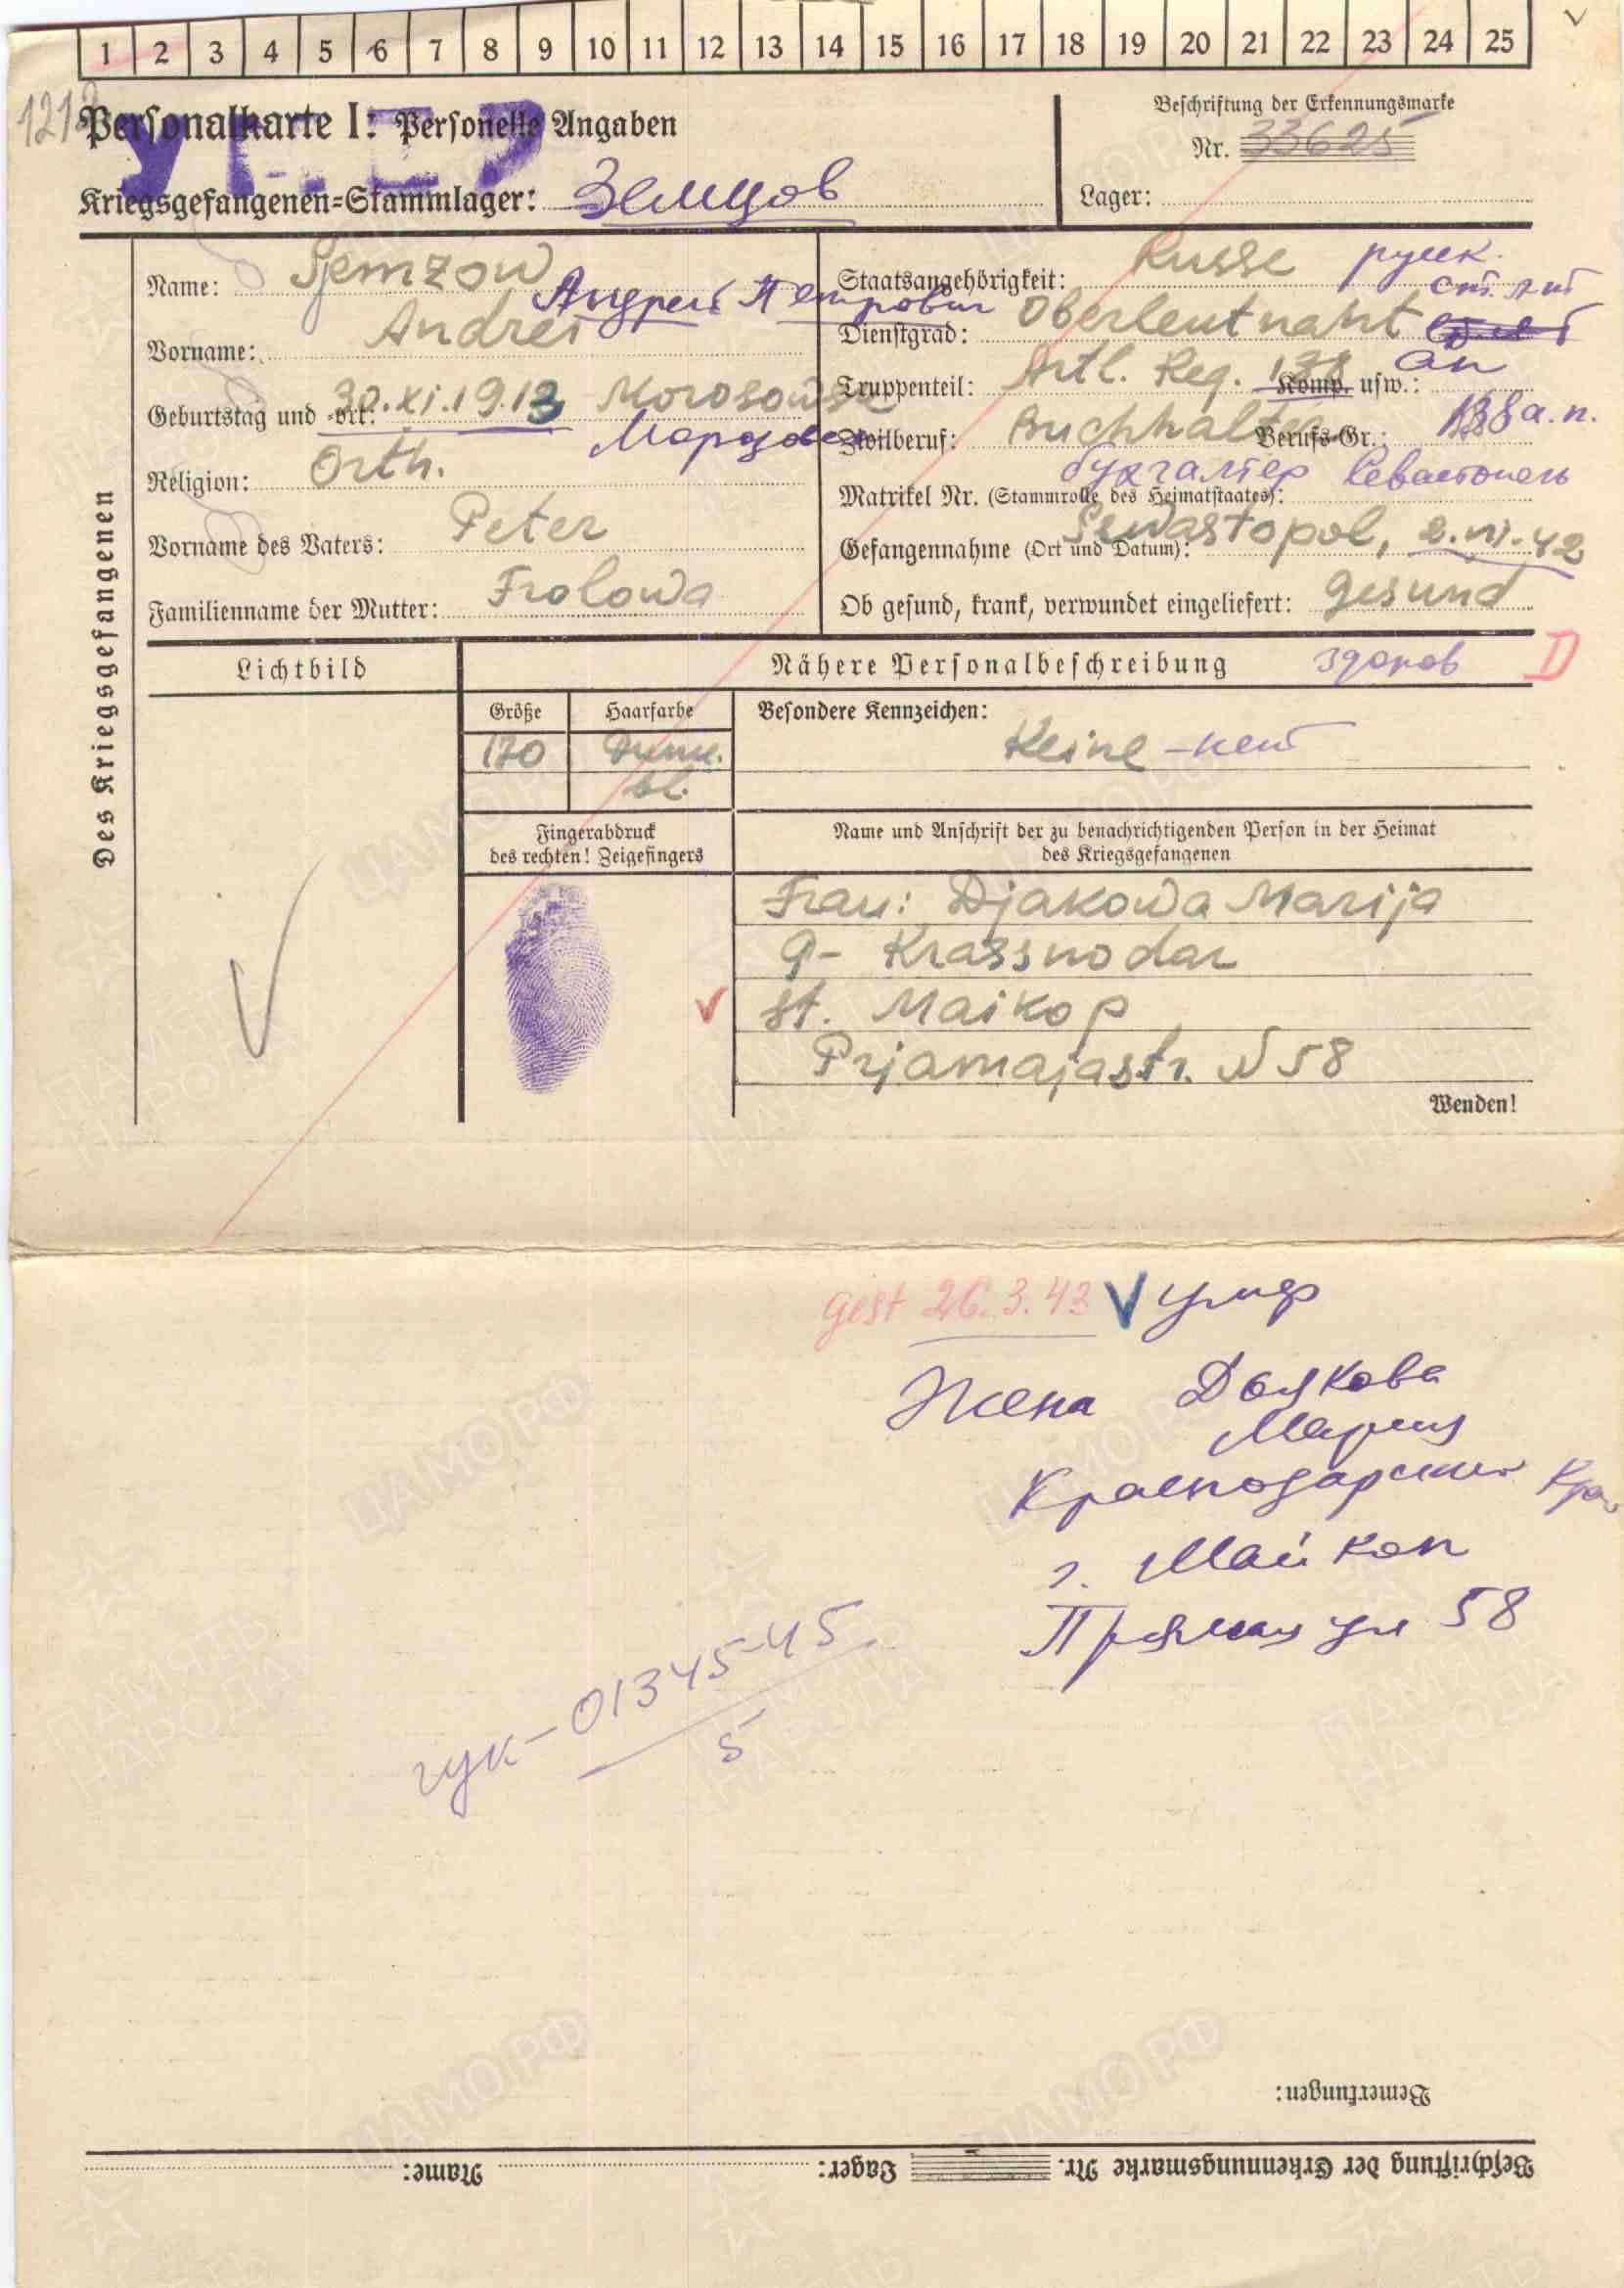 1 2 3 4 5 6 7 8 9 10 11 12 13 14 15 16 17 18 19 20 21 22 23 24 25
Personalkarte I: Personelle Angaben
Beschriftung der Erkennungsmarke
Nr. 33625
Kriegsgefangenen=Stammlager: Земцов
Lager:
Des Kriegsgefangenen
Name: Sjemzow
Андрей Петрович
Vorname: Andrei
Geburtstag und -ort: 30.XI.1913 Morosowsk
Морозовск
Religion: Orth.
Vorname des Vaters: Peter
Familienname der Mutter: Frolowa
Staatsangehörigkeit: Russe русск.
ст. л-т
Dienstgrad: Oberleutnant
Truppenteil: Artl. Reg. 138 Komp. usw.: ап
138 а.п.
Zivilberuf: Buchhalter Berufs-Gr.:
бухгалтер Севастополь
Matrikel Nr. (Stammrolle des Heimatstaates):
Gefangennahme (Ort und Datum): Sewastopol, 2.VI.42
Ob gesund, krank, verwundet eingeliefert: gesund
Lichtbild
Nähere Personalbeschreibung здоров D
Größe Haarfarbe Besondere Kennzeichen:
170 Dunk. Keine - нет
bl.
Fingerabdruck
des rechten! Zeigefingers
Name und Anschrift der zu benachrichtigenden Person in der Heimat
des Kriegsgefangenen
Frau: Djakowa Marija
G- Krassnodar
st. Maikop
Prjamajastr. N 58
Wenden!
gest 26.3.43 V умер
Жена Дьякова
Мария
Краснодарский край
г. Майкоп
Прямая ул 58
гук-01345-45
5
Bemerkungen:
Beschriftung der Erkennungsmarke Nr. Lager: Name:
ЦАМО РФ
ПАМЯТЬ
НАРОДА